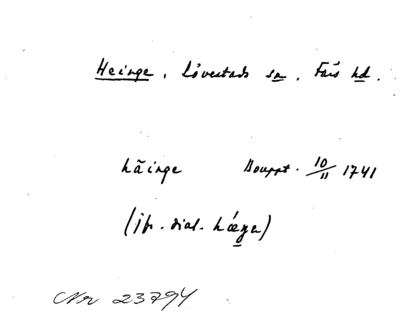 Heinge, Lövestads sn, Färs hd.
häinge Bouppt. 10/11 1741
(jfr. dial. hǽŋa)
Nr 23794